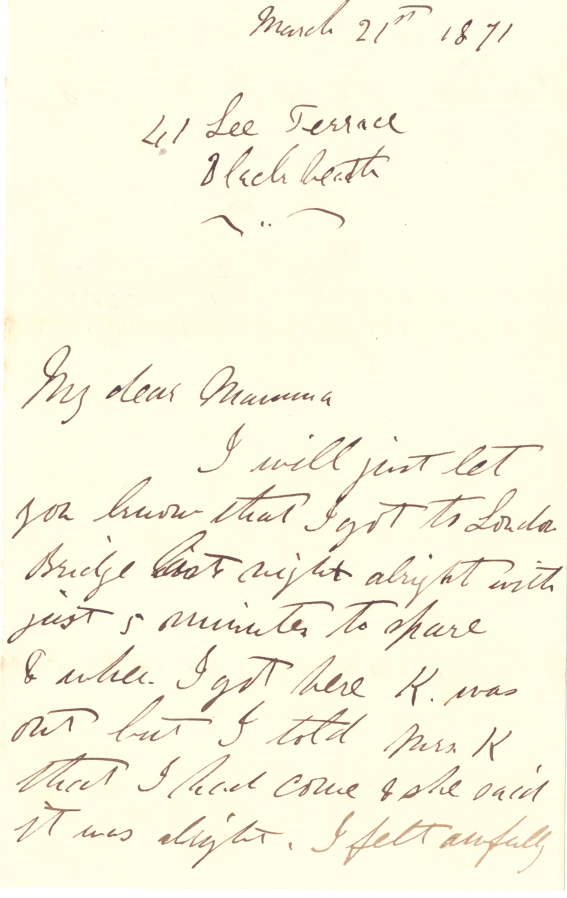 March 21st 1871
41 Lee Terrace
Blackheath
My dear Mamma
I will just let
you know that I got to London
Bridge last night alright with
just 5 minutes to spare
& when I got here K. was
out but I told Mrs K
that I had come & she said
it was alright. I felt awfully